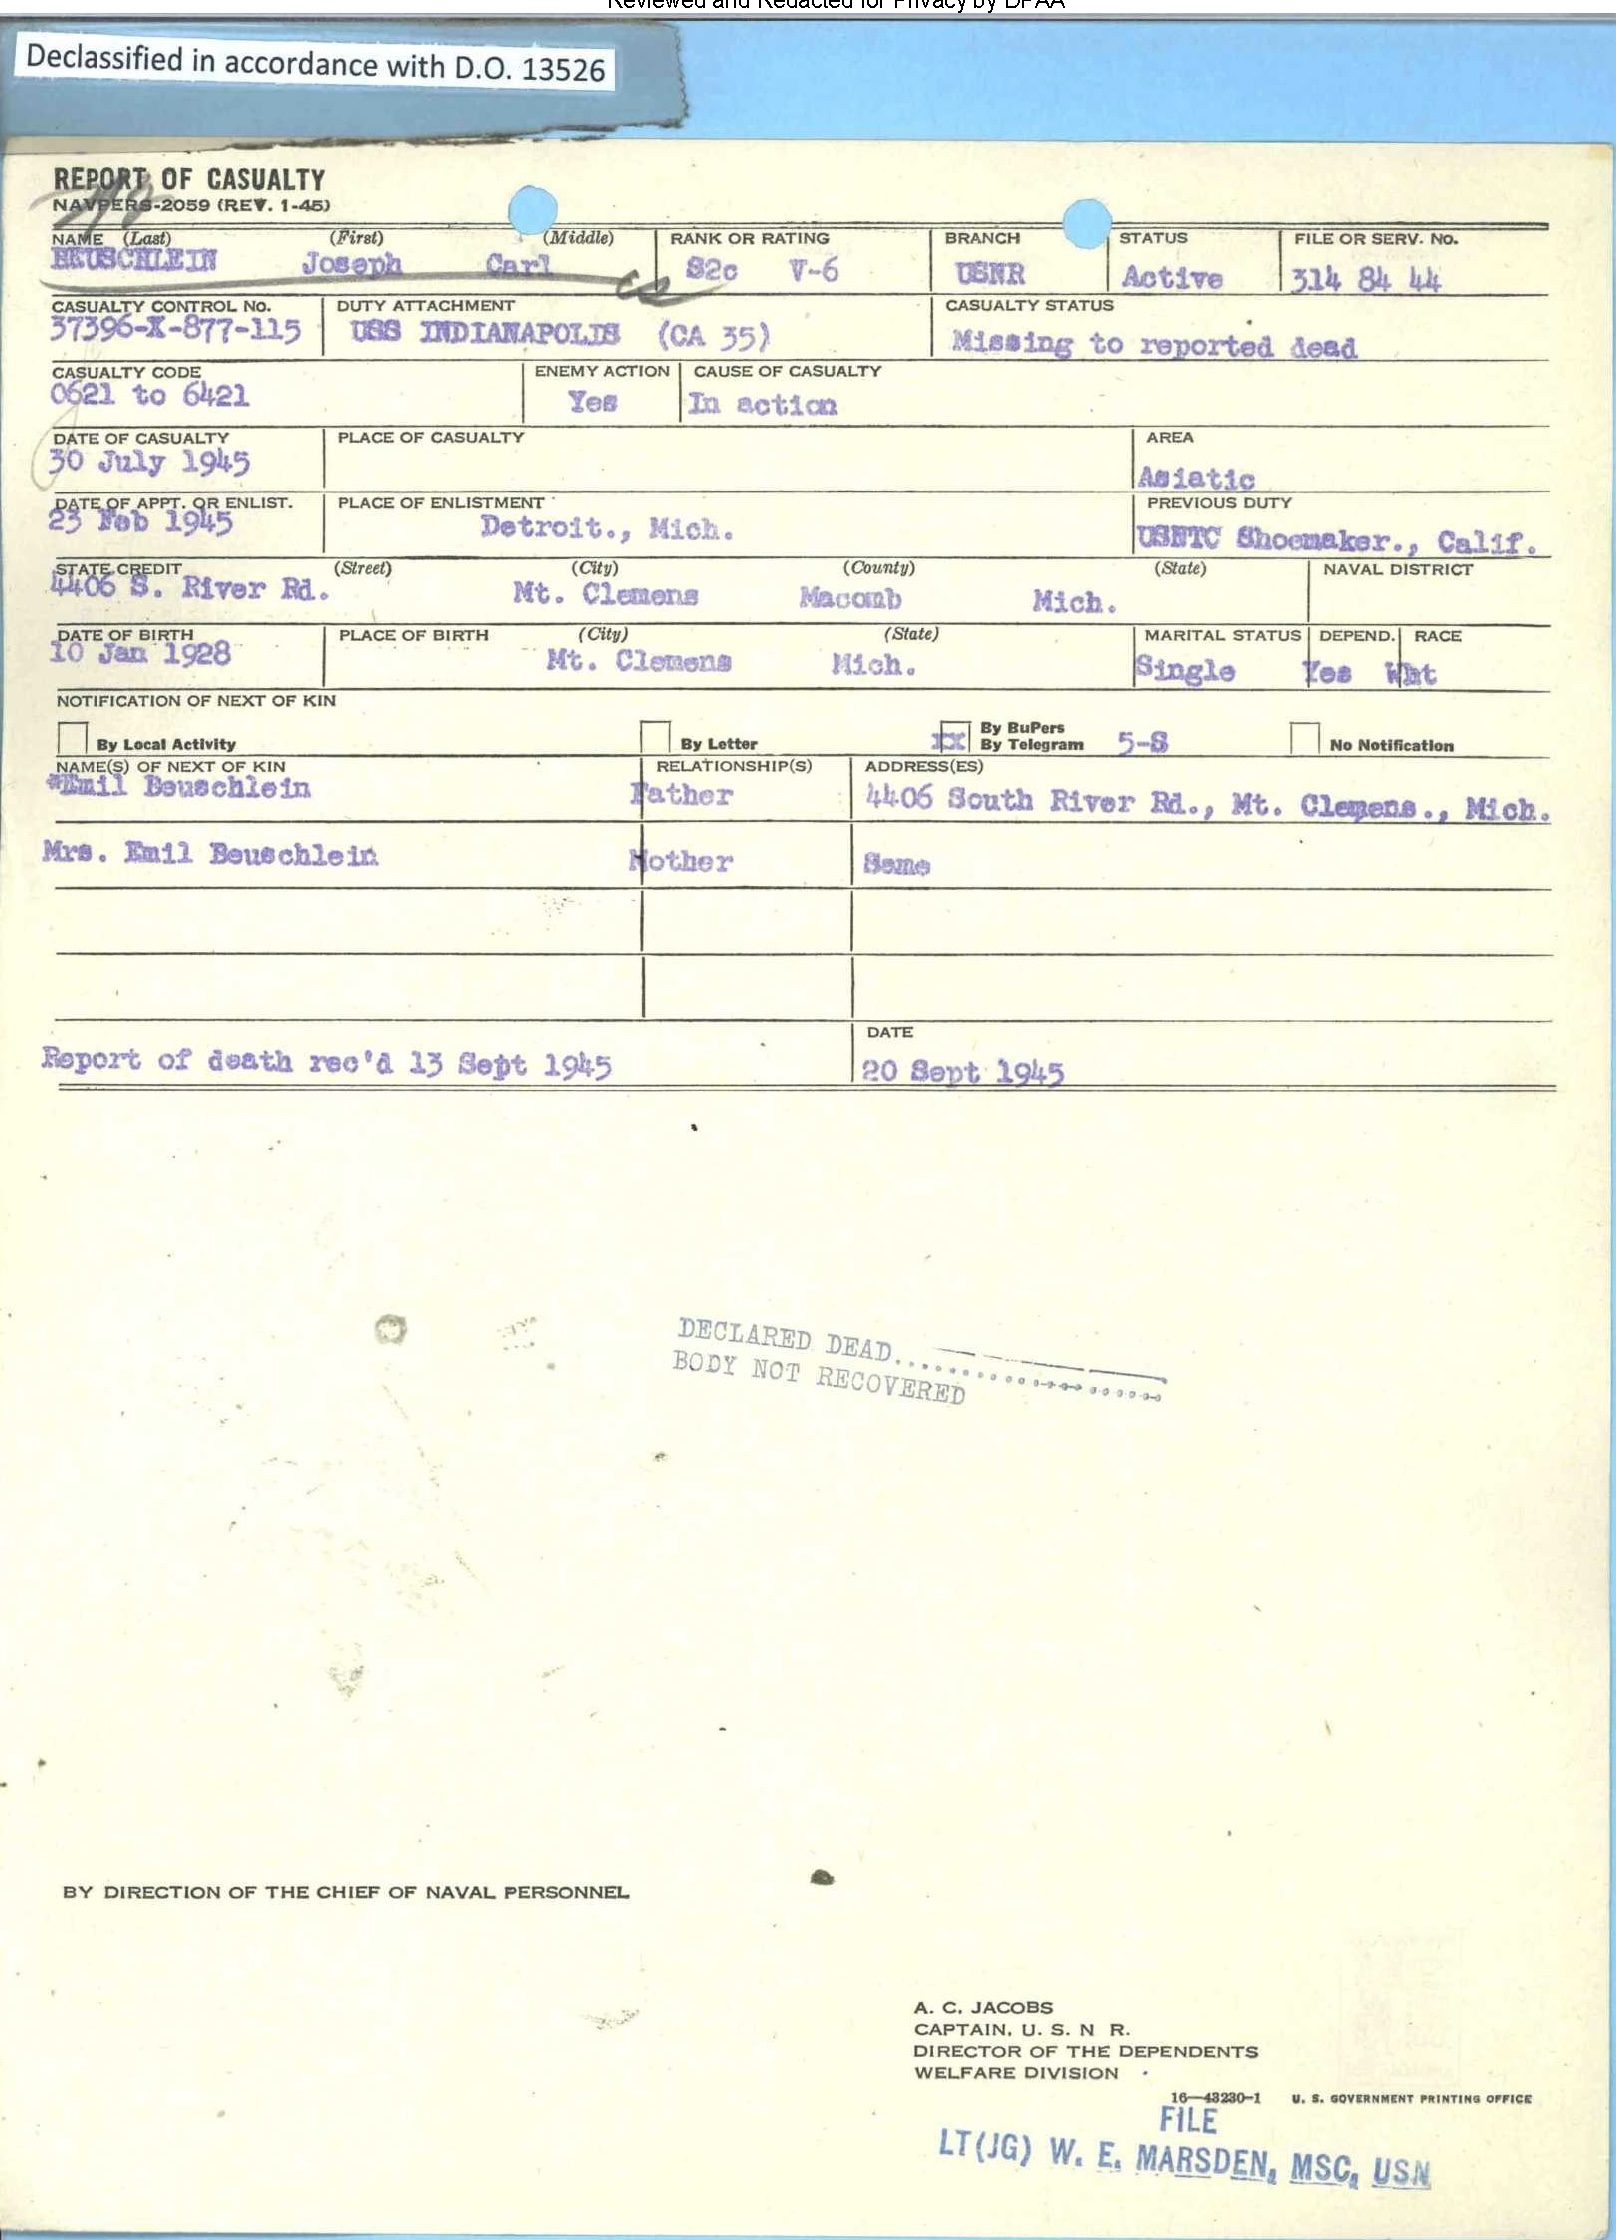 Reviewed and Redacted for Privacy by DPAA
Declassified in accordance with D.O. 13526
REPORT OF CASUALTY
NAVPERS-2059 (REV. 1-45)
NAME (Last) (First) (Middle) RANK OR RATING BRANCH STATUS FILE OR SERV. No.
BEUSCHLEIN Joseph Carl S2c V-6 USNR Active 314 84 44
CASUALTY CONTROL No. DUTY ATTACHMENT CASUALTY STATUS
37396-X-877-115 USS INDIANAPOLIS (CA 35) Missing to reported dead
CASUALTY CODE ENEMY ACTION CAUSE OF CASUALTY
0621 to 6421 Yes In action
DATE OF CASUALTY PLACE OF CASUALTY AREA
30 July 1945 Asiatic
DATE OF APPT. OR ENLIST. PLACE OF ENLISTMENT PREVIOUS DUTY
23 Feb 1945 Detroit., Mich. USNTC Shoemaker., Calif.
STATE CREDIT (Street) (City) (County) (State) NAVAL DISTRICT
4406 S. River Rd. Mt. Clemens Macomb Mich.
DATE OF BIRTH PLACE OF BIRTH (City) (State) MARITAL STATUS DEPEND. RACE
10 Jan 1928 Mt. Clemens Mich. Single Yes Wht
NOTIFICATION OF NEXT OF KIN
By Local Activity By Letter XX By BuPers By Telegram 5-S No Notification
NAME(S) OF NEXT OF KIN RELATIONSHIP(S) ADDRESS(ES)
*Emil Beuschlein Father 4406 South River Rd., Mt. Clemens., Mich.
Mrs. Emil Beuschlein Mother Same
DATE
Report of death rec'd 13 Sept 1945 20 Sept 1945
DECLARED DEAD..............................
BODY NOT RECOVERED
BY DIRECTION OF THE CHIEF OF NAVAL PERSONNEL
A. C. JACOBS
CAPTAIN, U. S. N R.
DIRECTOR OF THE DEPENDENTS
WELFARE DIVISION
16—43230-1 U. S. GOVERNMENT PRINTING OFFICE
FILE
LT(JG) W. E. MARSDEN, MSC, USN